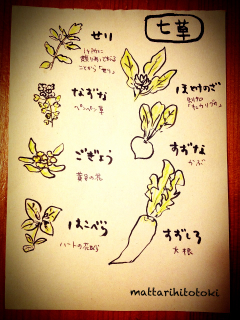 七草
せり
1ヶ所に
競りあって生える
ことから「せり」
なずな
ペンペン草
ごぎょう
はこべら
ハートの花びら
ほとけのざ
すずな
かぶ
すずしろ
大根
mattarihitotoki